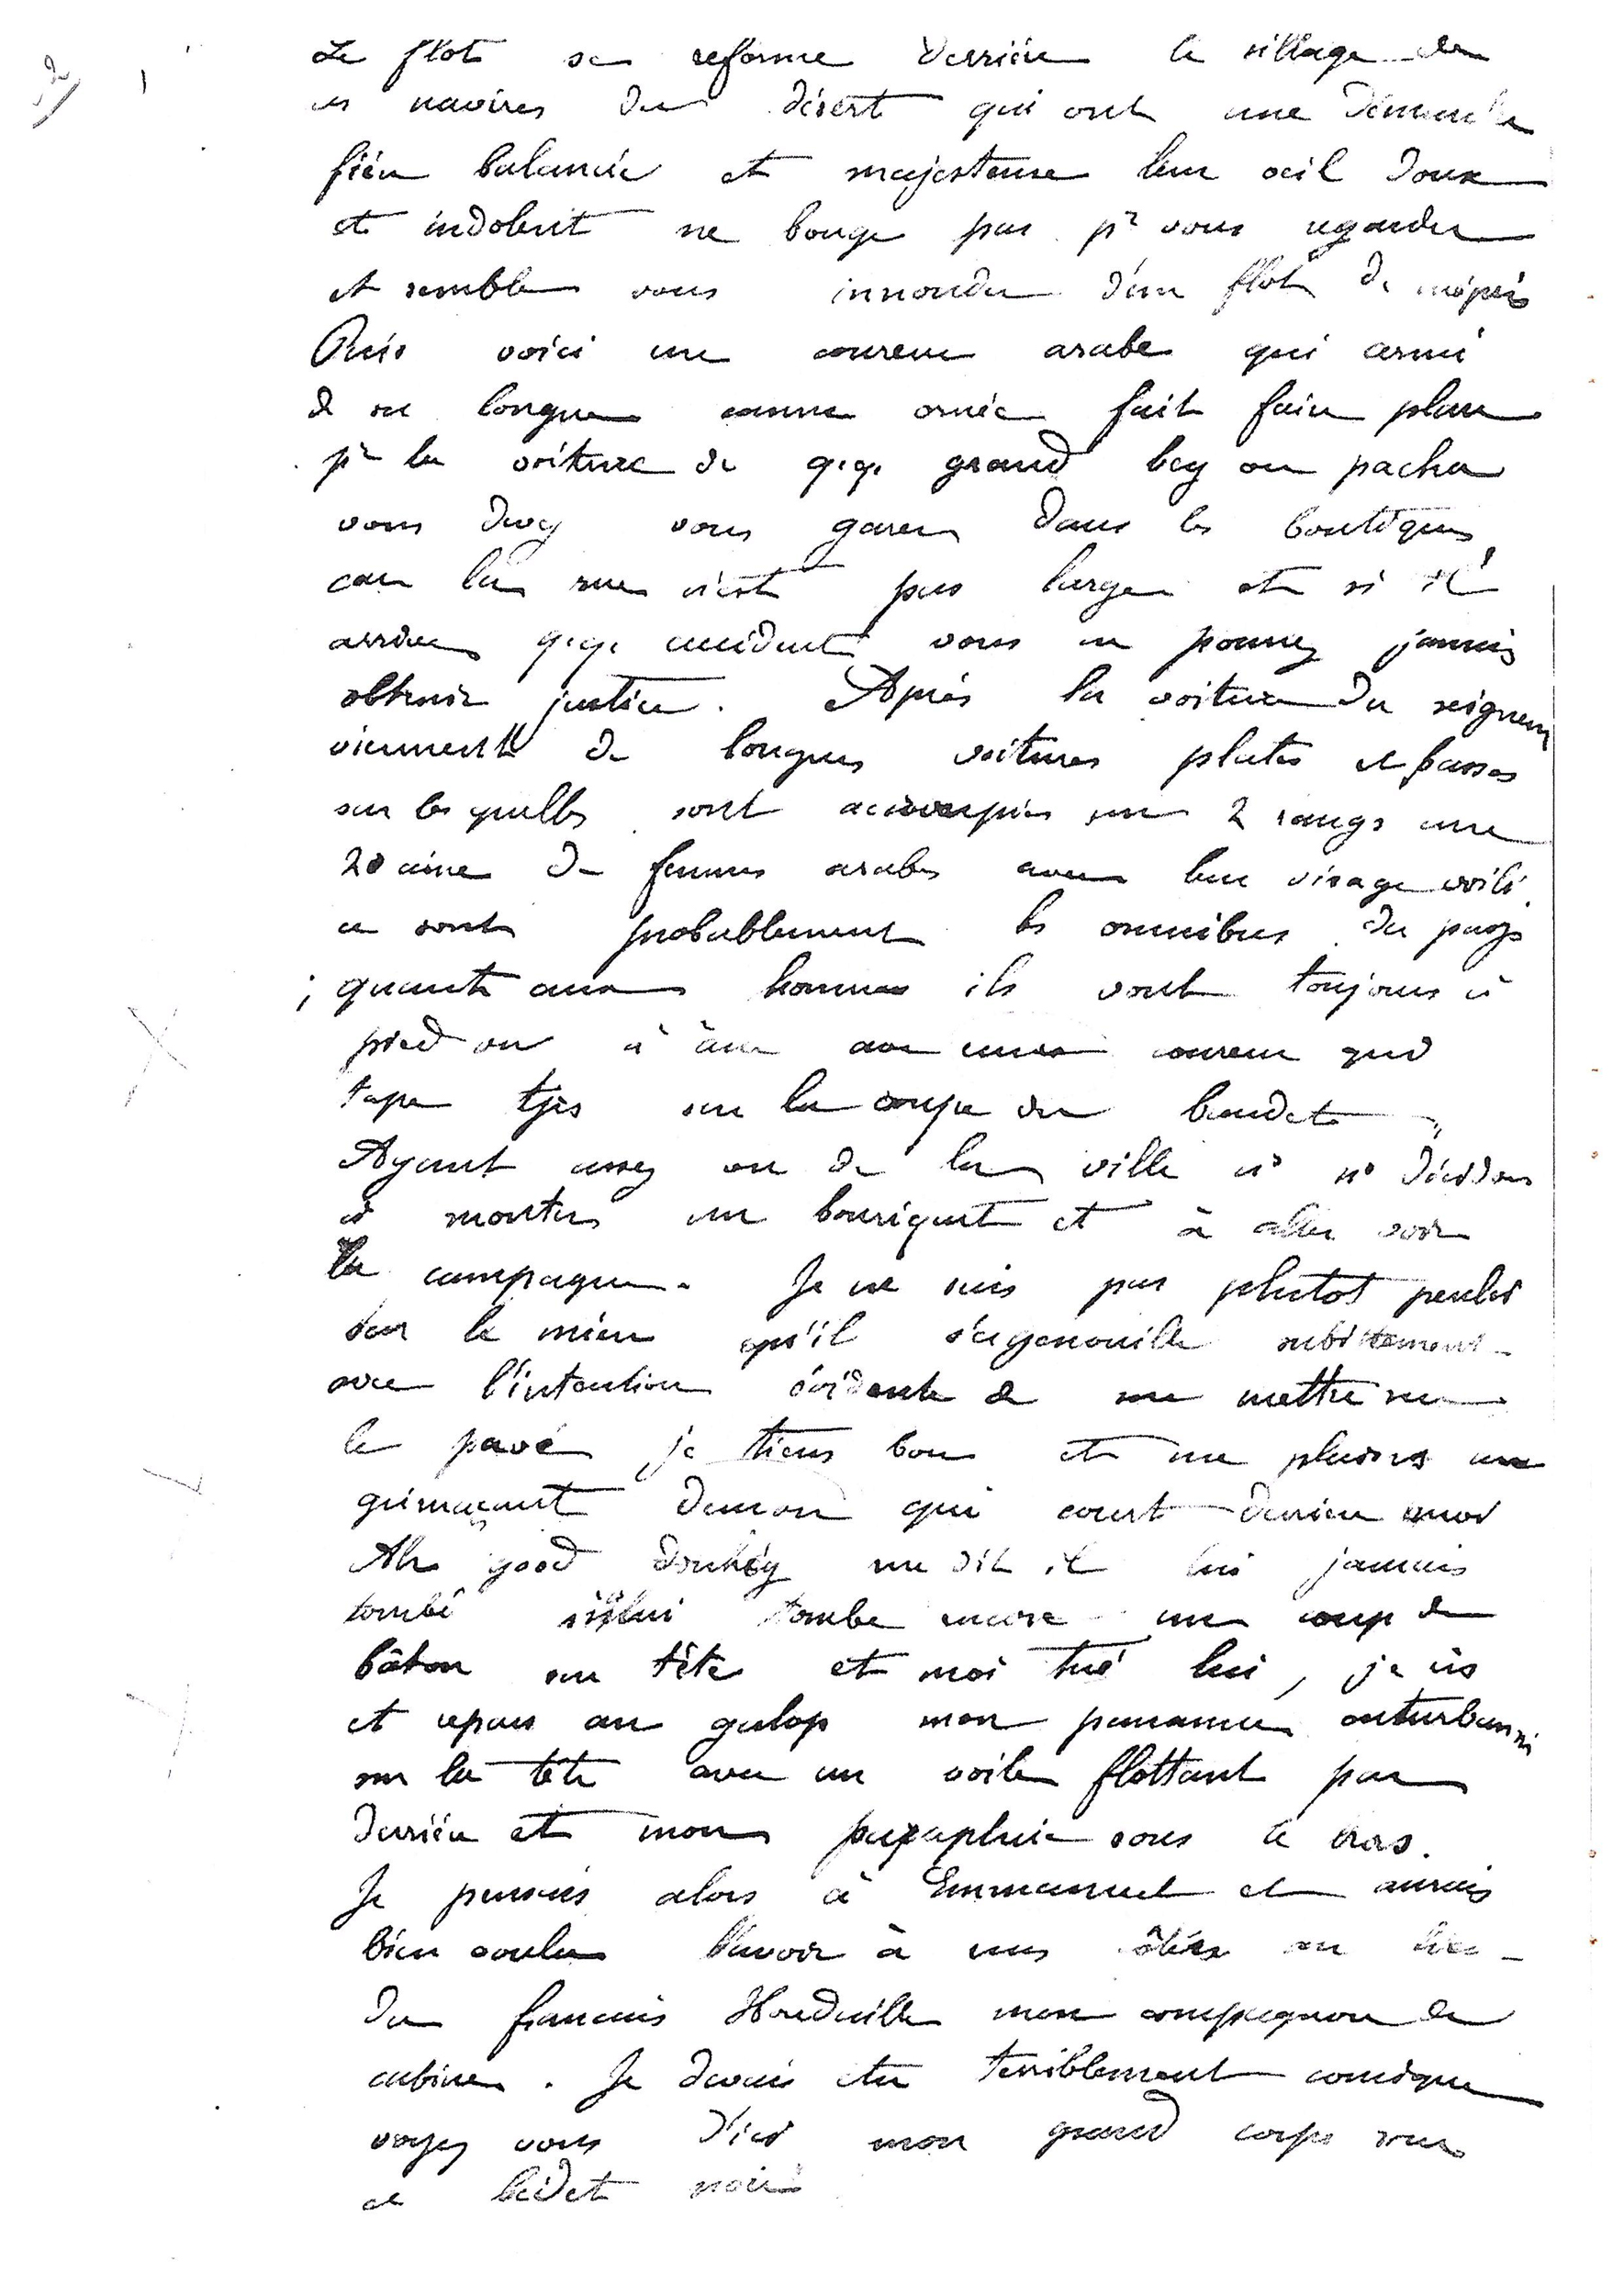 Le flot se reforme derrière le sillage de
ces navires du désert qui ont une démarche
fière balancée et majesteuse leur oeil doux
et indolent ne bouge pas pr vous regarder
et semble vous innonder d'un flot de mépris
Puis voici un coureur arabe qui armé
de sa longue canne ornée fait faire place
pr la voiture de qq. grand bey ou pacha
vous devez vous garer dans les boutiques,
car la rue n'est pas large et si il
arrive qq. accident vous ne pourrez jamais
obtenir justice. Après la voiture du seigneur
viennent de longues voitures plates et basses
sur lesquelles sont accroupies sur 2 rangs une
20aine de femmes arabes avec leur visage voilé.
ce sont probablement les omnibus du pays
; quant aux hommes ils vont toujours à
pied ou à âne avec un coureur qui
tape tjrs sur la croupe du baudet
Ayant assez vu de la ville ns ns décidons
à monter un bouriquet et à aller voir
la campagne. Je ne suis pas plutot perché
sur le mien qu'il s'agenouille subittement
avec l'intention évidente de me mettre sur
le pavé je tiens bon et me plains au
grimaçant demon qui court derrière moi
Ah good donkey me dit il lui jamais
tombé si lui tombe encore un coup de
bâton sur tête et moi tué lui, je ris
et repars au galop mon panama enturbanné
sur la tête avec un voile flottant par
derrière et mon parapluie sous le bras.
Je pensais alors à Emmanuel et aurais
bien voulu l'avoir à mes côtés au lieu
du francais Houdaille mon compagnon de
cabine. Je devais etre terriblement comique
voyez vous d'ici mon grand corps sur
ce bidet noir